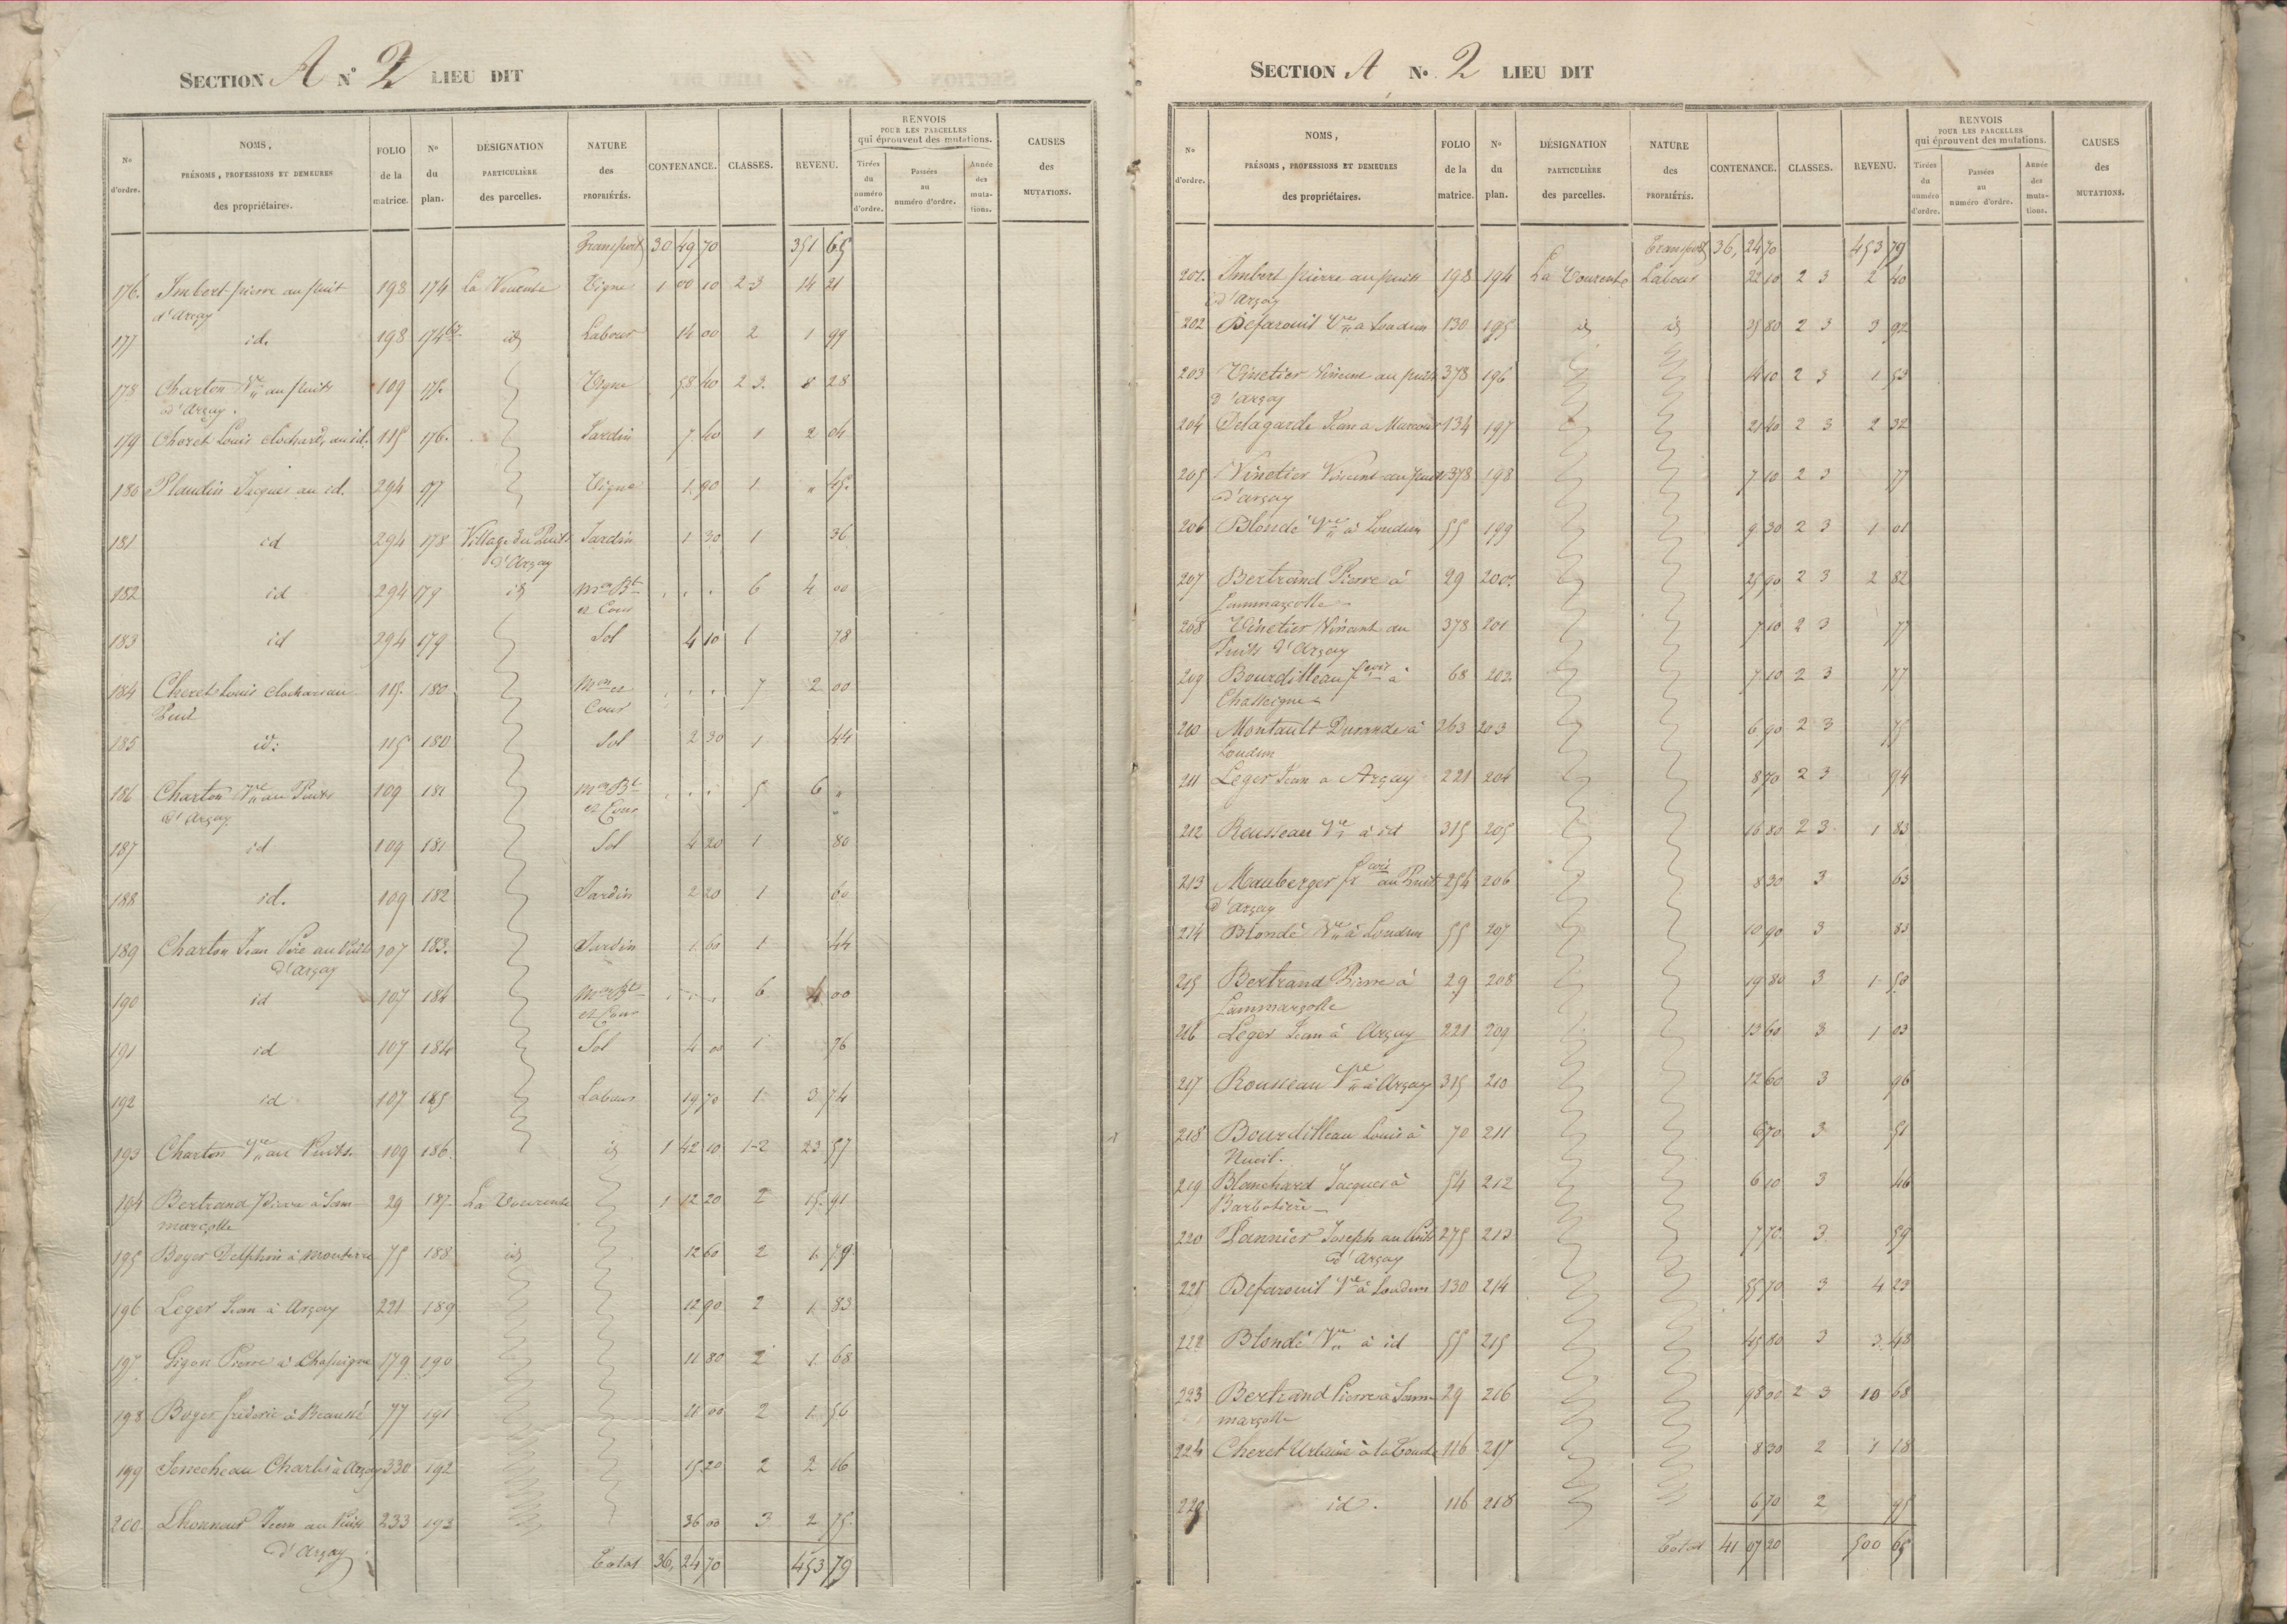 SECTION A N° 2 LIEU DIT
N° d'ordre. NOMS, PRÉNOMS, PROFESSIONS ET DEMEURES des propriétaires. FOLIO de la matrice. N° du plan. DÉSIGNATION PARTICULIÈRE des parcelles. NATURE des PROPRIÉTÉS. CONTENANCE. CLASSES. REVENU. RENVOIS POUR LES PARCELLES qui éprouvent des mutations. Tirées du numéro d'ordre. Passées au numéro d'ordre. Année des mutations. CAUSES des MUTATIONS.
Transport 30 49 70 351 65
176. Imbert pierre au puit 198 174 La Vourente Vigne 1 00 10 2-3 14 21
d'Arçay
177 id. 198 174 bis id Labour 14 00 2 1 99
178 Charton Vve au puits 109 175. Vigne 58 40 2 3. 8 28
d'Arçay.
179 Choret Louis clochard, au id. 115 176. Jardin 7 40 1 2 04
180 Plaudin Jacques au id. 294 97 Vigne 1 90 1 " 45
181 id 294 178 Village du Puit Jardin 1 30 1 36
d'Arçay
182 id 294 179 id mon Bt 6 4 00
et Cour
183 id 294 179 Sol 4 10 1 78
184 Cheret Louis clochar au 115. 180 Mon et 7 2 00
Puit Cour
185 id. 115 180 Sol 2 30 1 44
186 Charton Vve au Puits 109 181 mon Bt 5 6 "
d'Arçay et Cour
187 id 109 181 Sol 4 20 1 80
188 id. 109 182 Jardin 2 20 1 60
189 Charton Jean Père au Puits 107 183. Jardin 1 60 1 44
d'Arçay
190 id 107 184 mon Bt 6 4 00
et Cour
191 id 107 184 Sol 4 00 1 76
192 id 107 185 Labour 19 70 1 3 74
193 Charton Vve au Puits. 109 186. id 1 42 10 1-2 23 57
194 Bertrand Pierre à Sam 29 187. La Vourente 1 12 20 2 15. 91
marçolle
195 Boyer Delphin à Mouterre 75 188 id 12 60 2 1. 79
196 Leger Jean à Arçay 221 189 12 90 2 1. 83
197. Gigon Pierre à Chassigne 179 190 11 80 2 1. 68
198 Boyer frederic à Beaussé 77 191 11 00 2 1. 56
199 Senecheau Charles à Arçay 330 192 15 20 2 2 16
200 Lhonneur Jean au Puits 233 193 36 00 3 2 75.
d'Arçay
Total 36, 24 70 453 79
SECTION A N° 2 LIEU DIT
N° d'ordre. NOMS, PRÉNOMS, PROFESSIONS ET DEMEURES des propriétaires. FOLIO de la matrice. N° du plan. DÉSIGNATION PARTICULIÈRE des parcelles. NATURE des PROPRIÉTÉS. CONTENANCE. CLASSES. REVENU. RENVOIS POUR LES PARCELLES qui éprouvent des mutations. Tirées du numéro d'ordre. Passées au numéro d'ordre. Année des mutations. CAUSES des MUTATIONS.
Transport 36, 24 70 453 79
201. Imbert pierre au puits 198 194 La Vourente Labour 22 10 2 3 2 40
d'Arçay
202 Defarouil Vve à Loudun 130 195 id id 35 80 2 3 3 92
203 Vinetier Vincent au puits 378 196 14 10 2 3 1 53
d'Arçay
204 Delagarde Jean a 134 197 21 40 2 3 2 32
205 Vinetier Vincent au puits 378 198 7 10 2 3 77
d'arçay
206 Blondé Vve à Loudun 55 199 9 30 2 3 1 01
207 Bertrand Pierre à 29 200. 25 90 2 3 2 82
Sammarçolle
208 Vinetier Vincent au 378 201 7 10 2 3 77
Puits d'Arçay
209 Bourdilleau à 68 202. 7 10 2 3 77
Chasseigne
210 Montault Durande à 263 203 6 90 2 3 75
Loudun
211 Leger Jean a Arçay 221 204 8 70 2 3 94
212 Rousseau Vve à id 315 205 16 80 2 3 1 83
213 Mauberger fs au Puit 254 206 8 30 3 63
d'Arçay
214 Blondé Vve à Loudun 55 207 10 90 3 83
215 Bertrand Pierre à 29 208 19 80 3 1 50
Sammarçolle
216 Leger Jean à Arçay 221 209 13 60 3 1 03
217 Rousseau Vve à Arçay 315 210 12 60 3 96
218 Bourdilleau Louis à 70 211 6 70 3 51
Nueil.
219 Blanchard Jacques à 54 212 6 10 3 46
Barbotière
220 Pannier Joseph au Puits 275 213 7 70 3. 59
d'Arçay
221 Defarouil Vve à Loudun 130 214 55 70 3 4 23
222 Blondé Vve à id 55 215 45 80 3 3. 48
223 Bertrand Pierre à Sam 29 216 98 00 2 3 10 68
marçolle
224 Cheret Urbain à la Touche 116 217 8 30 2 1 18
225 id. 116 218 6 70 2 95
Total 41 07 20 500 65